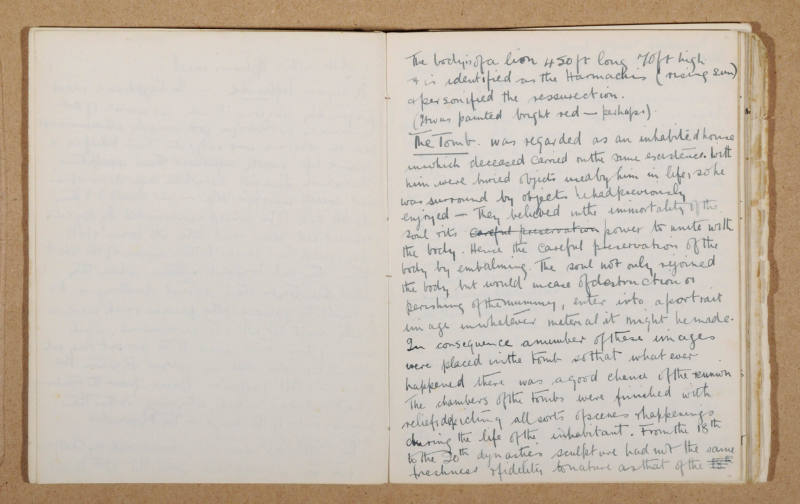 The body is of a lion 450ft long 70ft high
& is identified as the Harmachis (rising sun)
& personified the ressurection.
(It was painted bright red — perhaps).
The Tomb. was regarded as an inhabited house
in which deceased carried on the same existence. With
him were buried objects used by him in life, so he
was surround by objects he had previously
enjoyed — They believed in the immortality of the
soul & its careful preservation power to unite with
the body. Hence the careful preservation of the
body by embalming. The soul not only rejoined
the body but would in case of destruction or
perishing of the mummy, enter into a portrait
image in whatever material it might be made.
In consequence a number of these images
were placed in the tomb so that what ever
happened there was a good chance of the reunion
The chambers of the tombs were finished with
reliefs depicting all sorts of scenes & happenings
during the life of the inhabitant. From the 18th
to the 20th dynasties sculpture had not the same
freshness & fidelity to nature as that of the